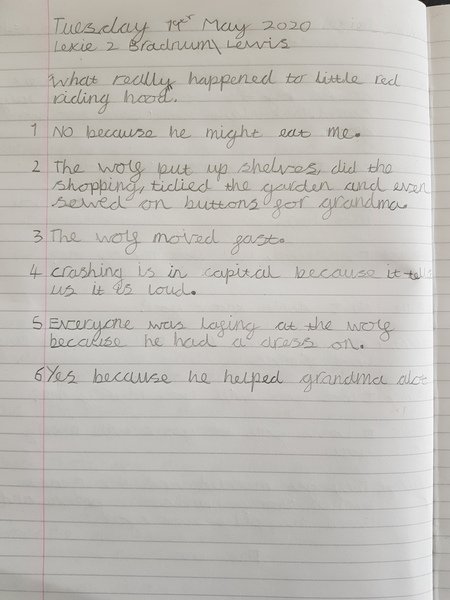 Tuesday 19st May 2020
Lexie 2 Bradnum\Lewis
What really happened to little red
riding hood.
1 No because he might eat me.
2 The wolf put up shelves, did the
shopping, tidied the garden and even
sewed on buttons for grandma.
3 The wolf moved fast.
4 crashing is in capital because it tells
us it is loud.
5 Everyone was lafing at the wolf
because he had a dress on.
6 Yes because he helped grandma alot